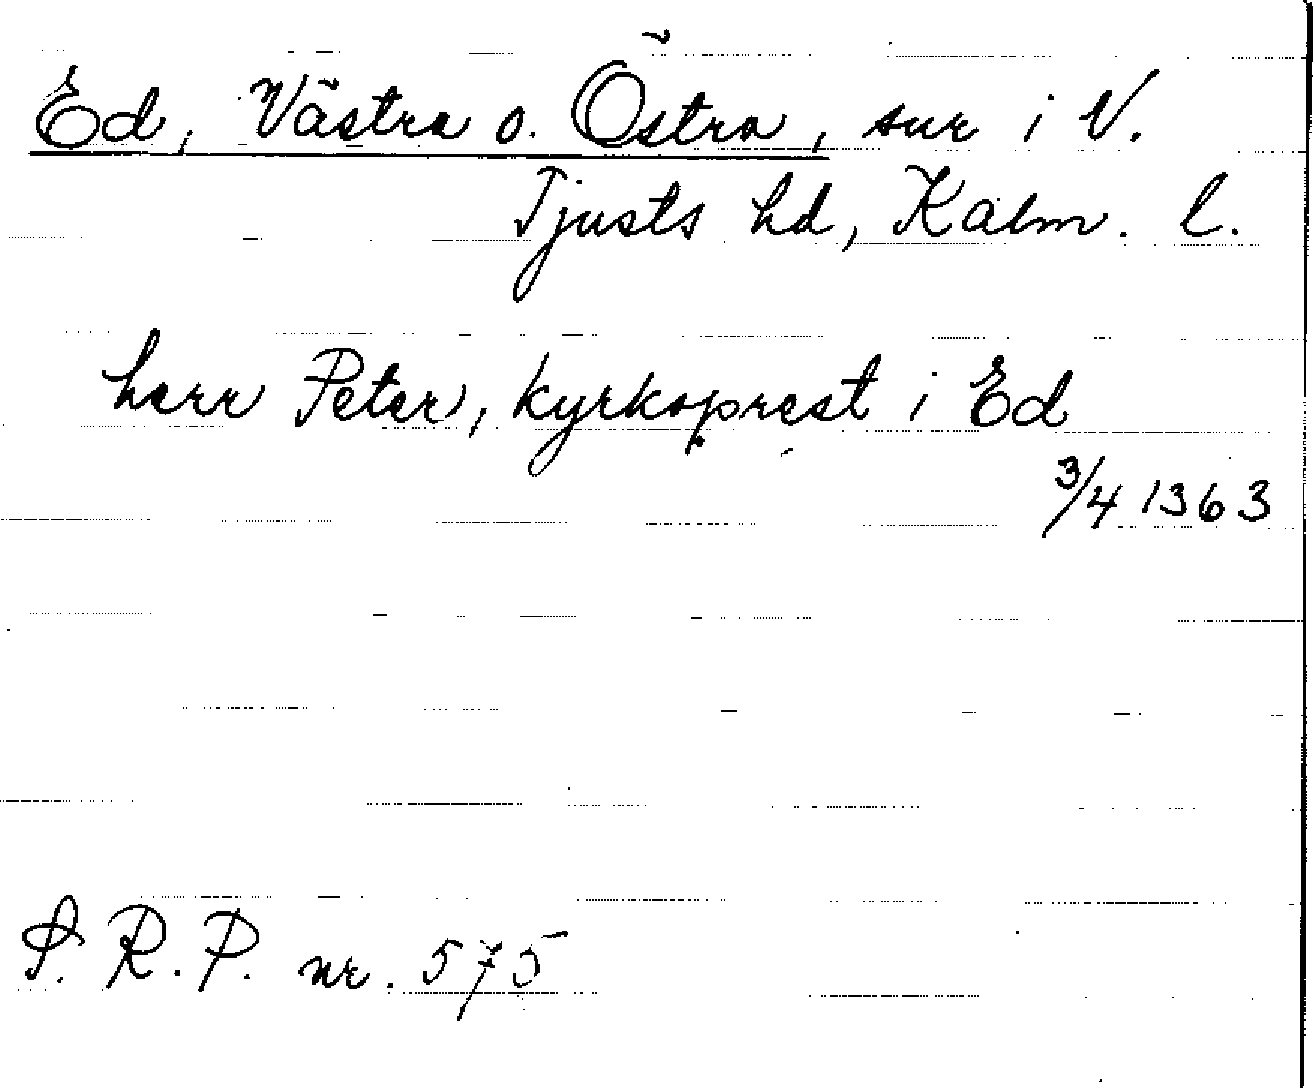 Ed, Västra o. Östra, snr i V.
Tjusts hd, Kalm. l.
herr Peter, kyrkoprest i Ed
3/4 1363
S. R. P. nr. 575